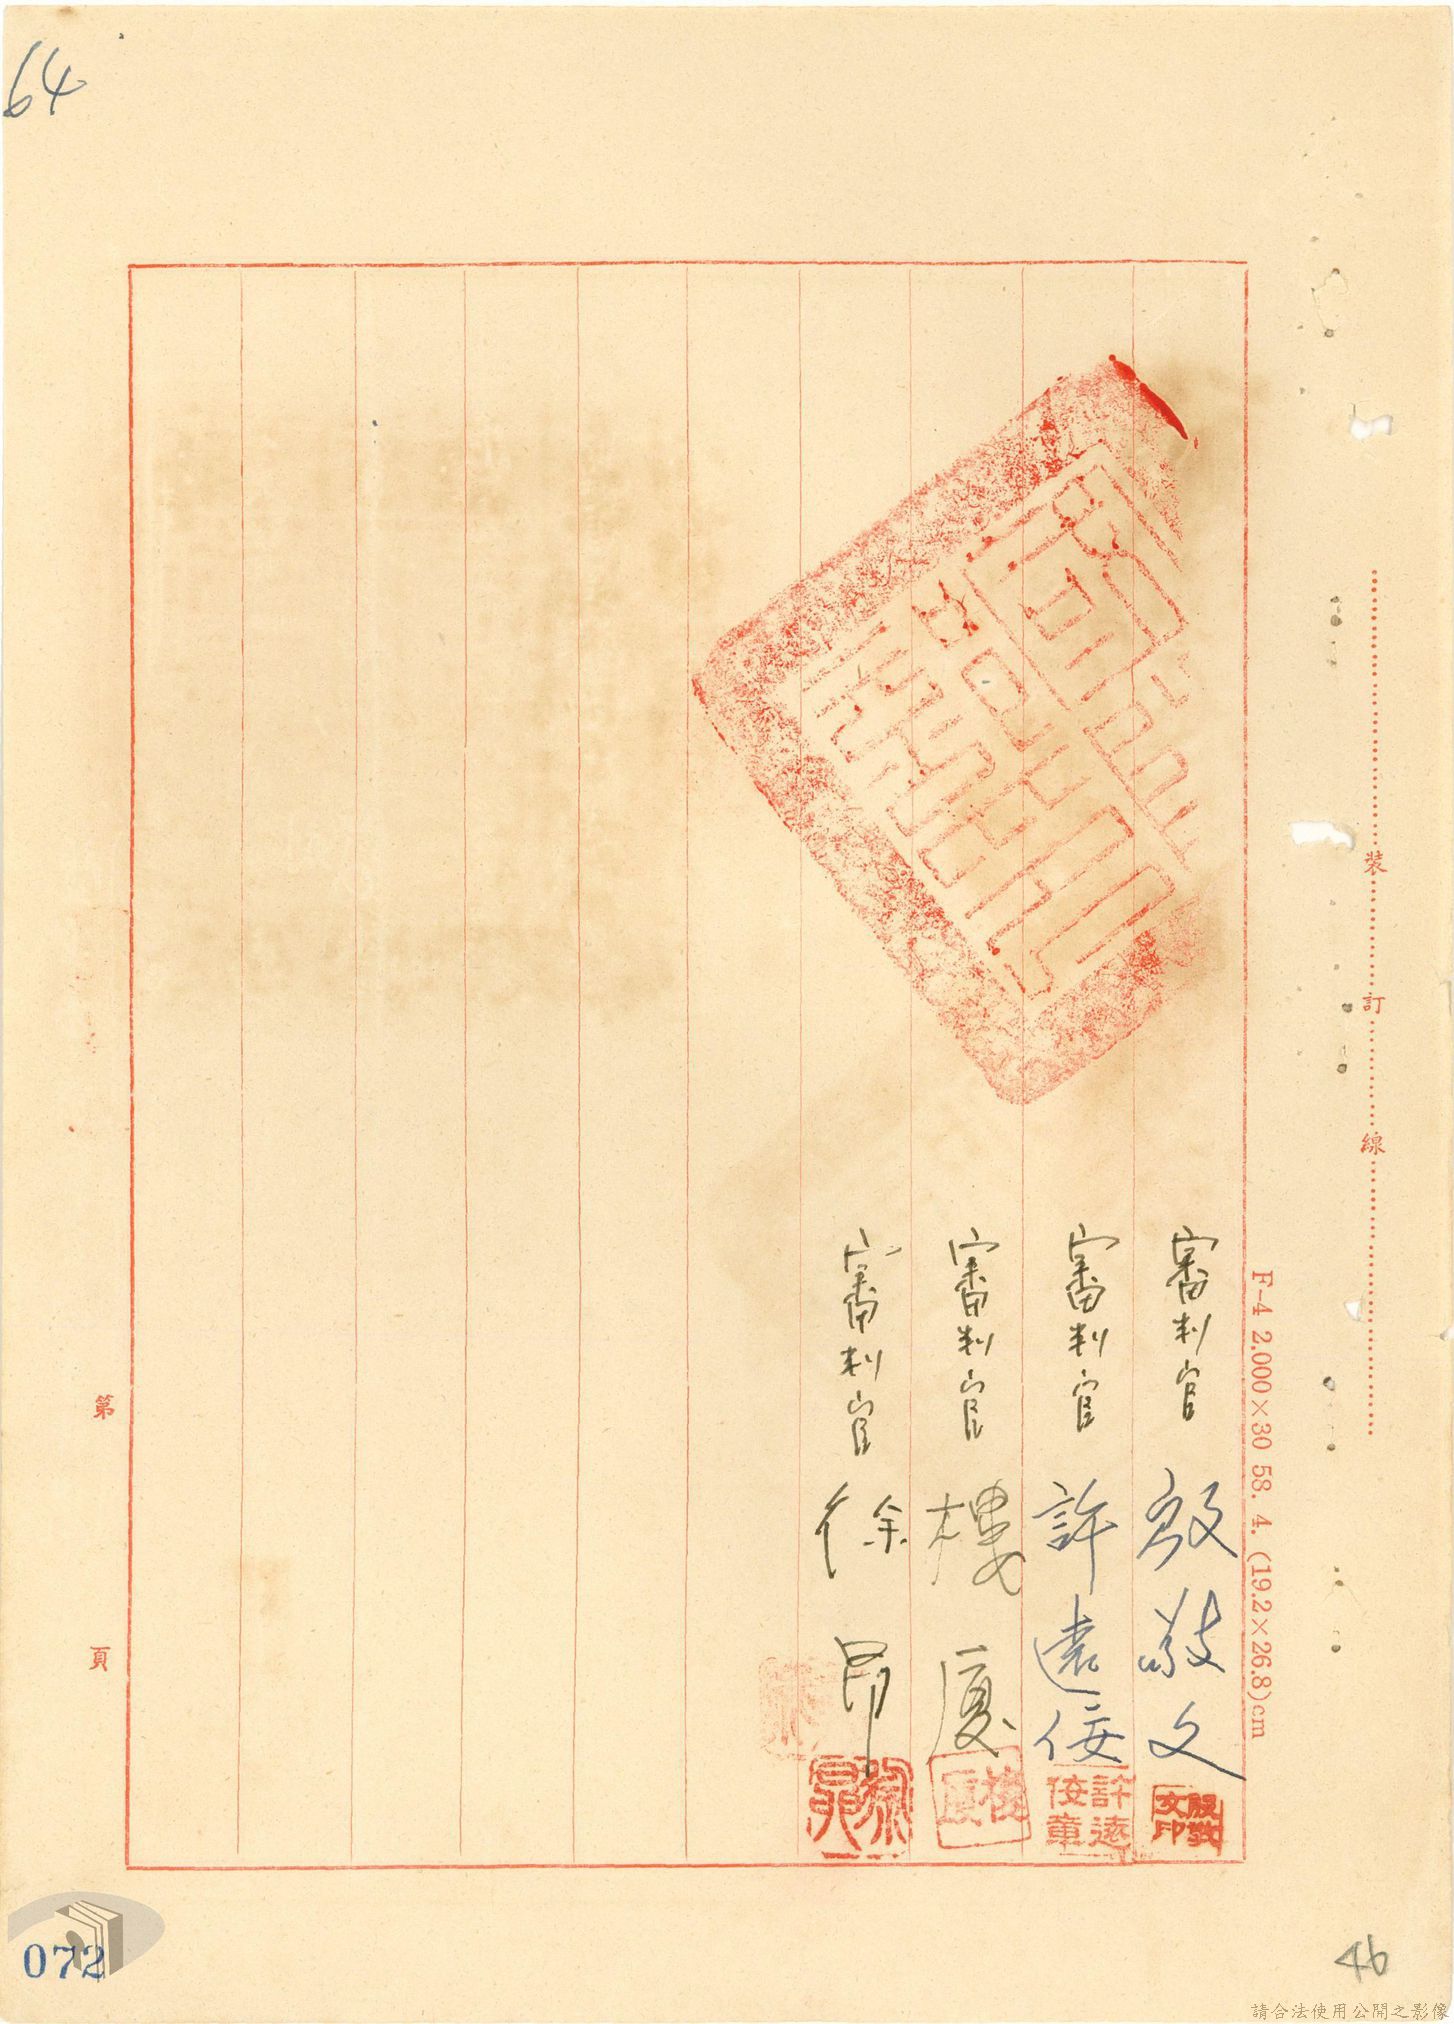 64
裝訂線
F-4 2,000×30 58. 4. (19.2×26.8)cm
審判官 殷敬文
殷敬文印
審判官 許遠佞
許遠佞章
審判官 樓廈
樓廈
審判官 徐昂
第 頁
072
46
請合法使用公開之影像